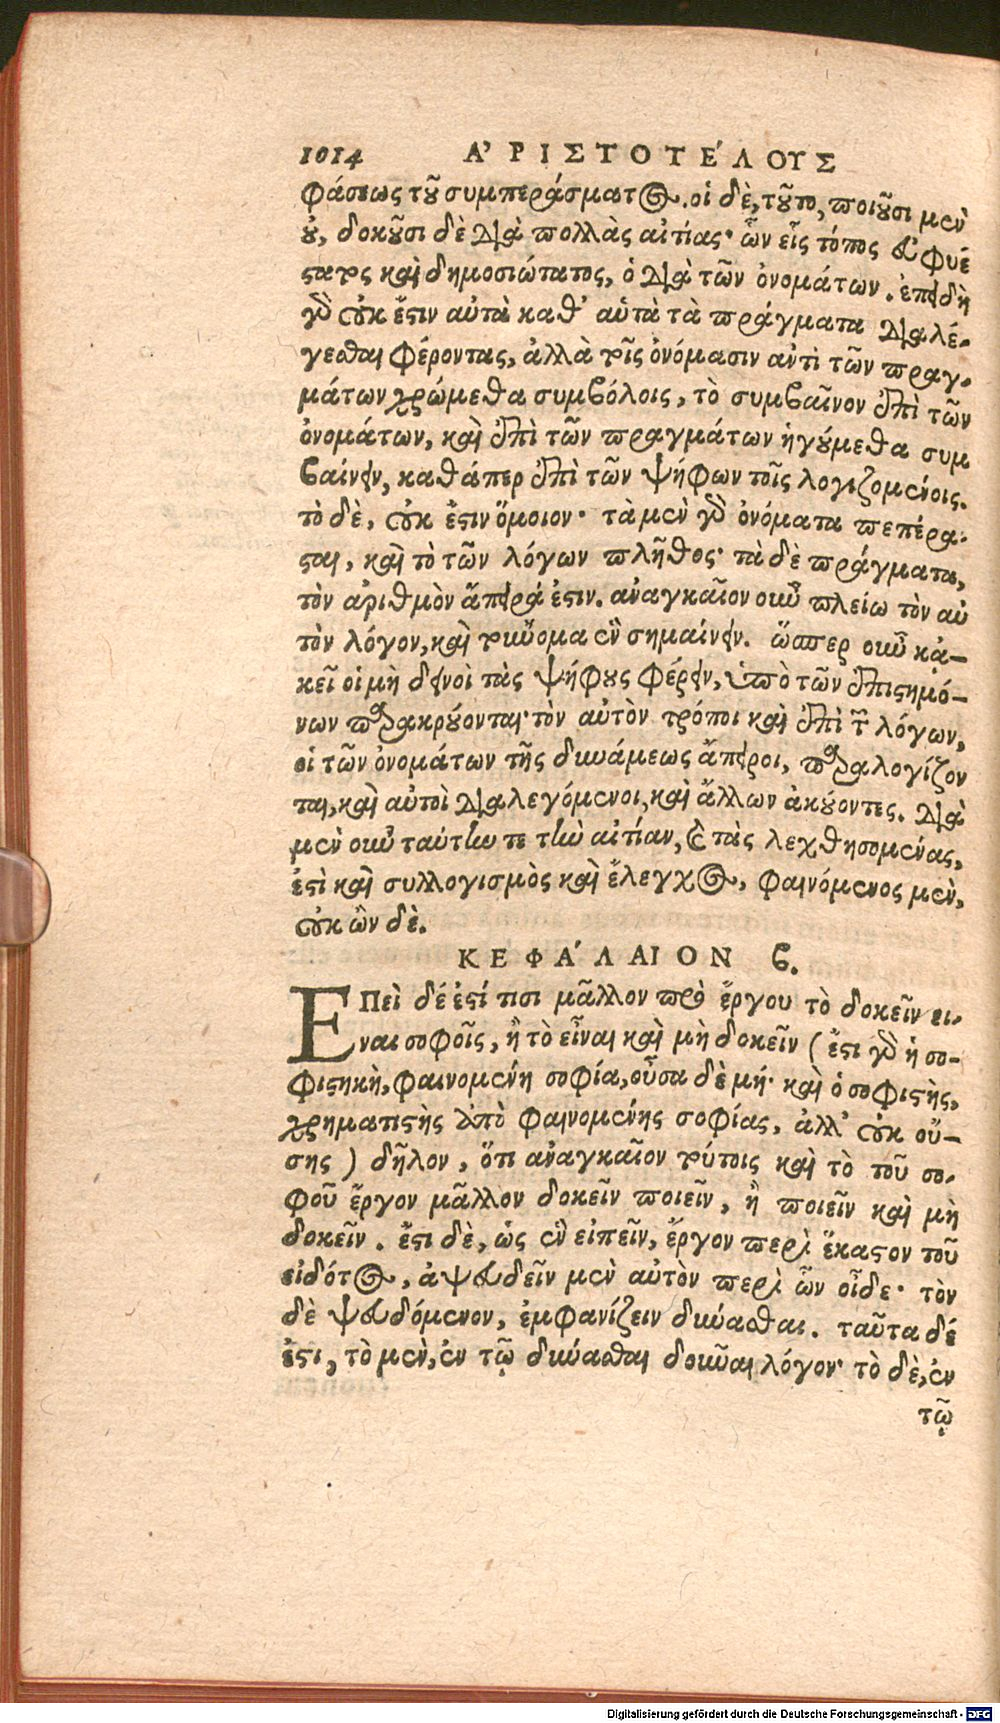 1014 Ἀ ΡΙΣΤΟΤΕ´ΛΟΥΣ
φάσεως τοῦ συμπεράσματος. οἱ δὲ, τοῦτο, ποιοῦσι μὲν
οὔ, δοκοῦσι δὲ διὰ πολλὰς αἰτίας· ὧν εἷς τόπος εὐφυέ
στατος καὶ δημοσιώτατος, ὁ διὰ τῶν ὀνομάτων. ἐπειδὴ
γὰρ οὐκ ἔστιν αὐτὰ καθ' αὑτὰ τὰ πράγματα διαλέ-
γεσθαι φέροντας, ἀλλὰ τοῖς ὀνόμασιν ἀντὶ τῶν πραγ-
μάτων χρώμεθα συμβόλοις, τὸ συμβαῖνον ἐπὶ τῶν
ὀνομάτων, καὶ ἐπὶ τῶν πραγμάτων ἡγούμεθα συμ
βαίνειν, καθάπερ ἐπὶ τῶν ψήφων τοῖς λογιζομένοις.
τὸ δὲ, οὐκ ἔστιν ὅμοιον· τὰ μὲν γὰρ ὀνόματα πεπέρα-
σται, καὶ τὸ τῶν λόγων πλῆθος· τὰ δὲ πράγματα,
τὸν ἀριθμὸν ἄπειρά ἐστιν. ἀναγκαῖον οὖν πλείω τὸν αὐ
τὸν λόγον, καὶ τοὔνομα ἓν σημαίνειν. ὥσπερ οὖν κἀ-
κεῖ οἱ μὴ δεινοὶ τὰς ψήφους φέρειν, ὑπὸ τῶν ἐπιστημό-
νων παρακρούονται· τὸν αὐτὸν τρόπον καὶ ἐπὶ τῶν λόγων,
οἱ τῶν ὀνομάτων τῆς δυνάμεως ἄπειροι, παραλογίζον
ται, καὶ αὐτοὶ διαλεγόμενοι, καὶ ἄλλων ἀκούοντες. διὰ
μὲν οὖν ταύτην τε τὴν αἰτίαν, καὶ τὰς λεχθησομένας,
ἐστὶ καὶ συλλογισμὸς καὶ ἔλεγχος, φαινόμενος μὲν,
οὐκ ὢν δὲ.
ΚΕΦΑ´ΛΑΙΟΝ ϐ.
ΕΠεὶ δέ ἐστί τισι μᾶλλον πρὸ ἔργου τὸ δοκεῖν εἶ-
ναι σοφοῖς, ἢ τὸ εἶναι καὶ μὴ δοκεῖν (ἔστι γὰρ ἡ σο-
φιστικὴ, φαινομένη σοφία, οὖσα δὲ μή· καὶ ὁ σοφιστὴς,
χρηματιστὴς ἀπὸ φαινομένης σοφίας, ἀλλ' οὐκ οὔ-
σης) δῆλον, ὅτι ἀναγκαῖον τούτοις καὶ τὸ τοῦ σο-
φοῦ ἔργον μᾶλλον δοκεῖν ποιεῖν, ἢ ποιεῖν καὶ μὴ
δοκεῖν. ἔστι δὲ, ὡς ἓν εἰπεῖν, ἔργον περὶ ἕκαστον τοῦ
εἰδότος, ἀψευδεῖν μὲν αὐτὸν περὶ ὧν οἶδε· τὸν
δὲ ψευδόμενον, ἐμφανίζειν δύνασθαι. ταῦτα δέ
ἐστι, τὸ μὲν, ἐν τῷ δύνασθαι δοῦναι λόγον· τὸ δὲ, ἐν
τῷ
Digitalisierung gefördert durch die Deutsche Forschungsgemeinschaft - DFG